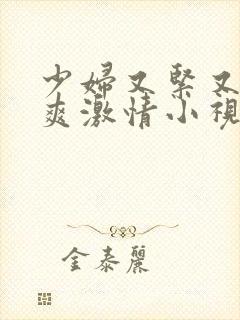 少婦又緊又
爽激情小視
金泰麗